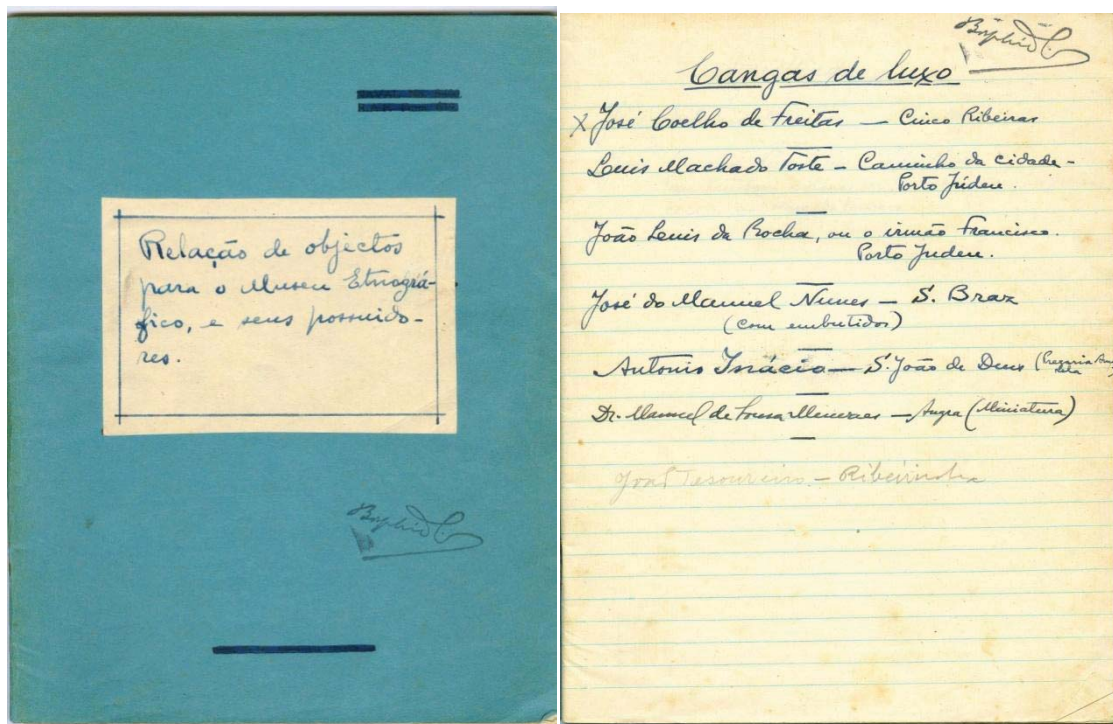 Relação de objectos
para o Museu Etnográ-
fico, e seus possuido-
res.
Cangas de luxo
X José Coelho de Freitas — Cinco Ribeiras
Luis Machado Toste — Caminho da cidade -
Porto Judeu.
João Luis da Rocha, ou o irmão Francisco.
Porto Judeu.
José do Manuel Nunes — S. Braz
(com embutidos)
Antonio Inácio — S. João de Deus
Dr. Manuel de Sousa Menezes — Angra (Miniatura)
João Tesoureiro — Ribeirinha